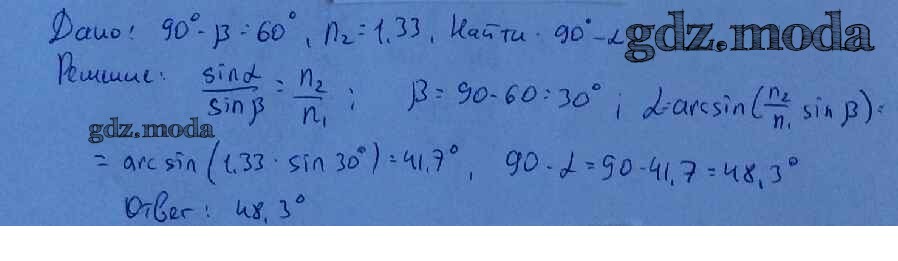 Дано: 90° - β = 60°, n₂ = 1,33. Найти: 90° - α
gdz.moda
Решение: sinα/sinβ = n₂/n₁; β = 90 - 60 = 30°; α = arcsin(n₂/n₁ sin β) =
gdz.moda
= arcsin(1,33 · sin 30°) = 41,7°, 90 - α = 90 - 41,7 = 48,3°
Ответ: 48,3°